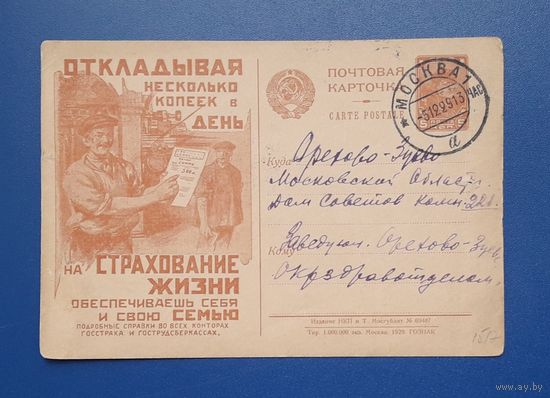 ОТКЛАДЫВАЯ
НЕСКОЛЬКО
КОПЕЕК В
ДЕНЬ
НА СТРАХОВАНИЕ
ЖИЗНИ
ОБЕСПЕЧИВАЕШЬ СЕБЯ
И СВОЮ СЕМЬЮ
ПОДРОБНЫЕ СПРАВКИ ВО ВСЕХ КОНТОРАХ
ГОССТРАХА И ГОСТРУДСБЕРКАССАХ.
ПОЧТОВАЯ
КАРТОЧКА
CARTE POSTALE
МОСКВА 1
ЧАС
а
Куда Орехово-Зуево
Московской Области.
Дом Советов комн. 226.
Кому Заведующ. Орехово-Зуев.
Окрздравотделом.
Издание НКП и Т. Мосгублит № 69467
Тир. 1.000.000 экз. Москва. 1929. ГОЗНАК
www.ay.by